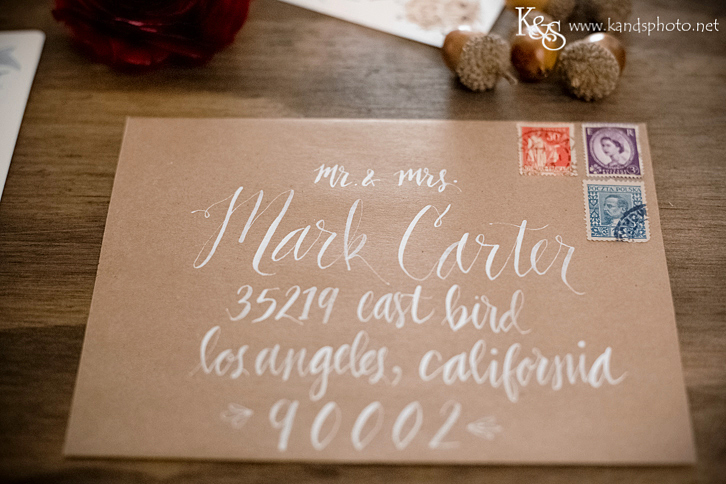 K&S www.kandsphoto.net
30
POCZTA POLSKA
mr. & mrs.
Mark Carter
35219 east bird
los angeles, california
90002